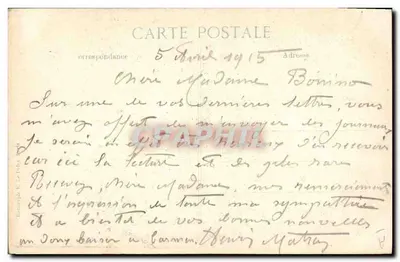 CARTE POSTALE
Correspondance
Adresse
5 Avril 1915
Chère Madame Bonino
Sur une de vos dernières lettres, vous
m'avez offert de m'envoyer des journaux
Je serais en effet très heureux d'en recevoir
car ici la lecture est des plus rares
Recevez, chère Madame, mes remerciements
et l'expression de toute ma sympathie
et à bientôt de vos bonnes nouvelles
un doux baiser à Carmen. Henri